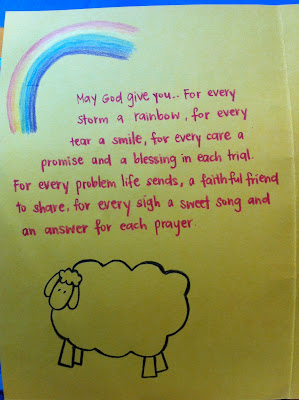 May God give you.. For every
storm a rainbow, for every
tear a smile, for every care a
promise and a blessing in each trial.
For every problem life sends, a faithful friend
to share, for every sigh a sweet song and
an answer for each prayer.